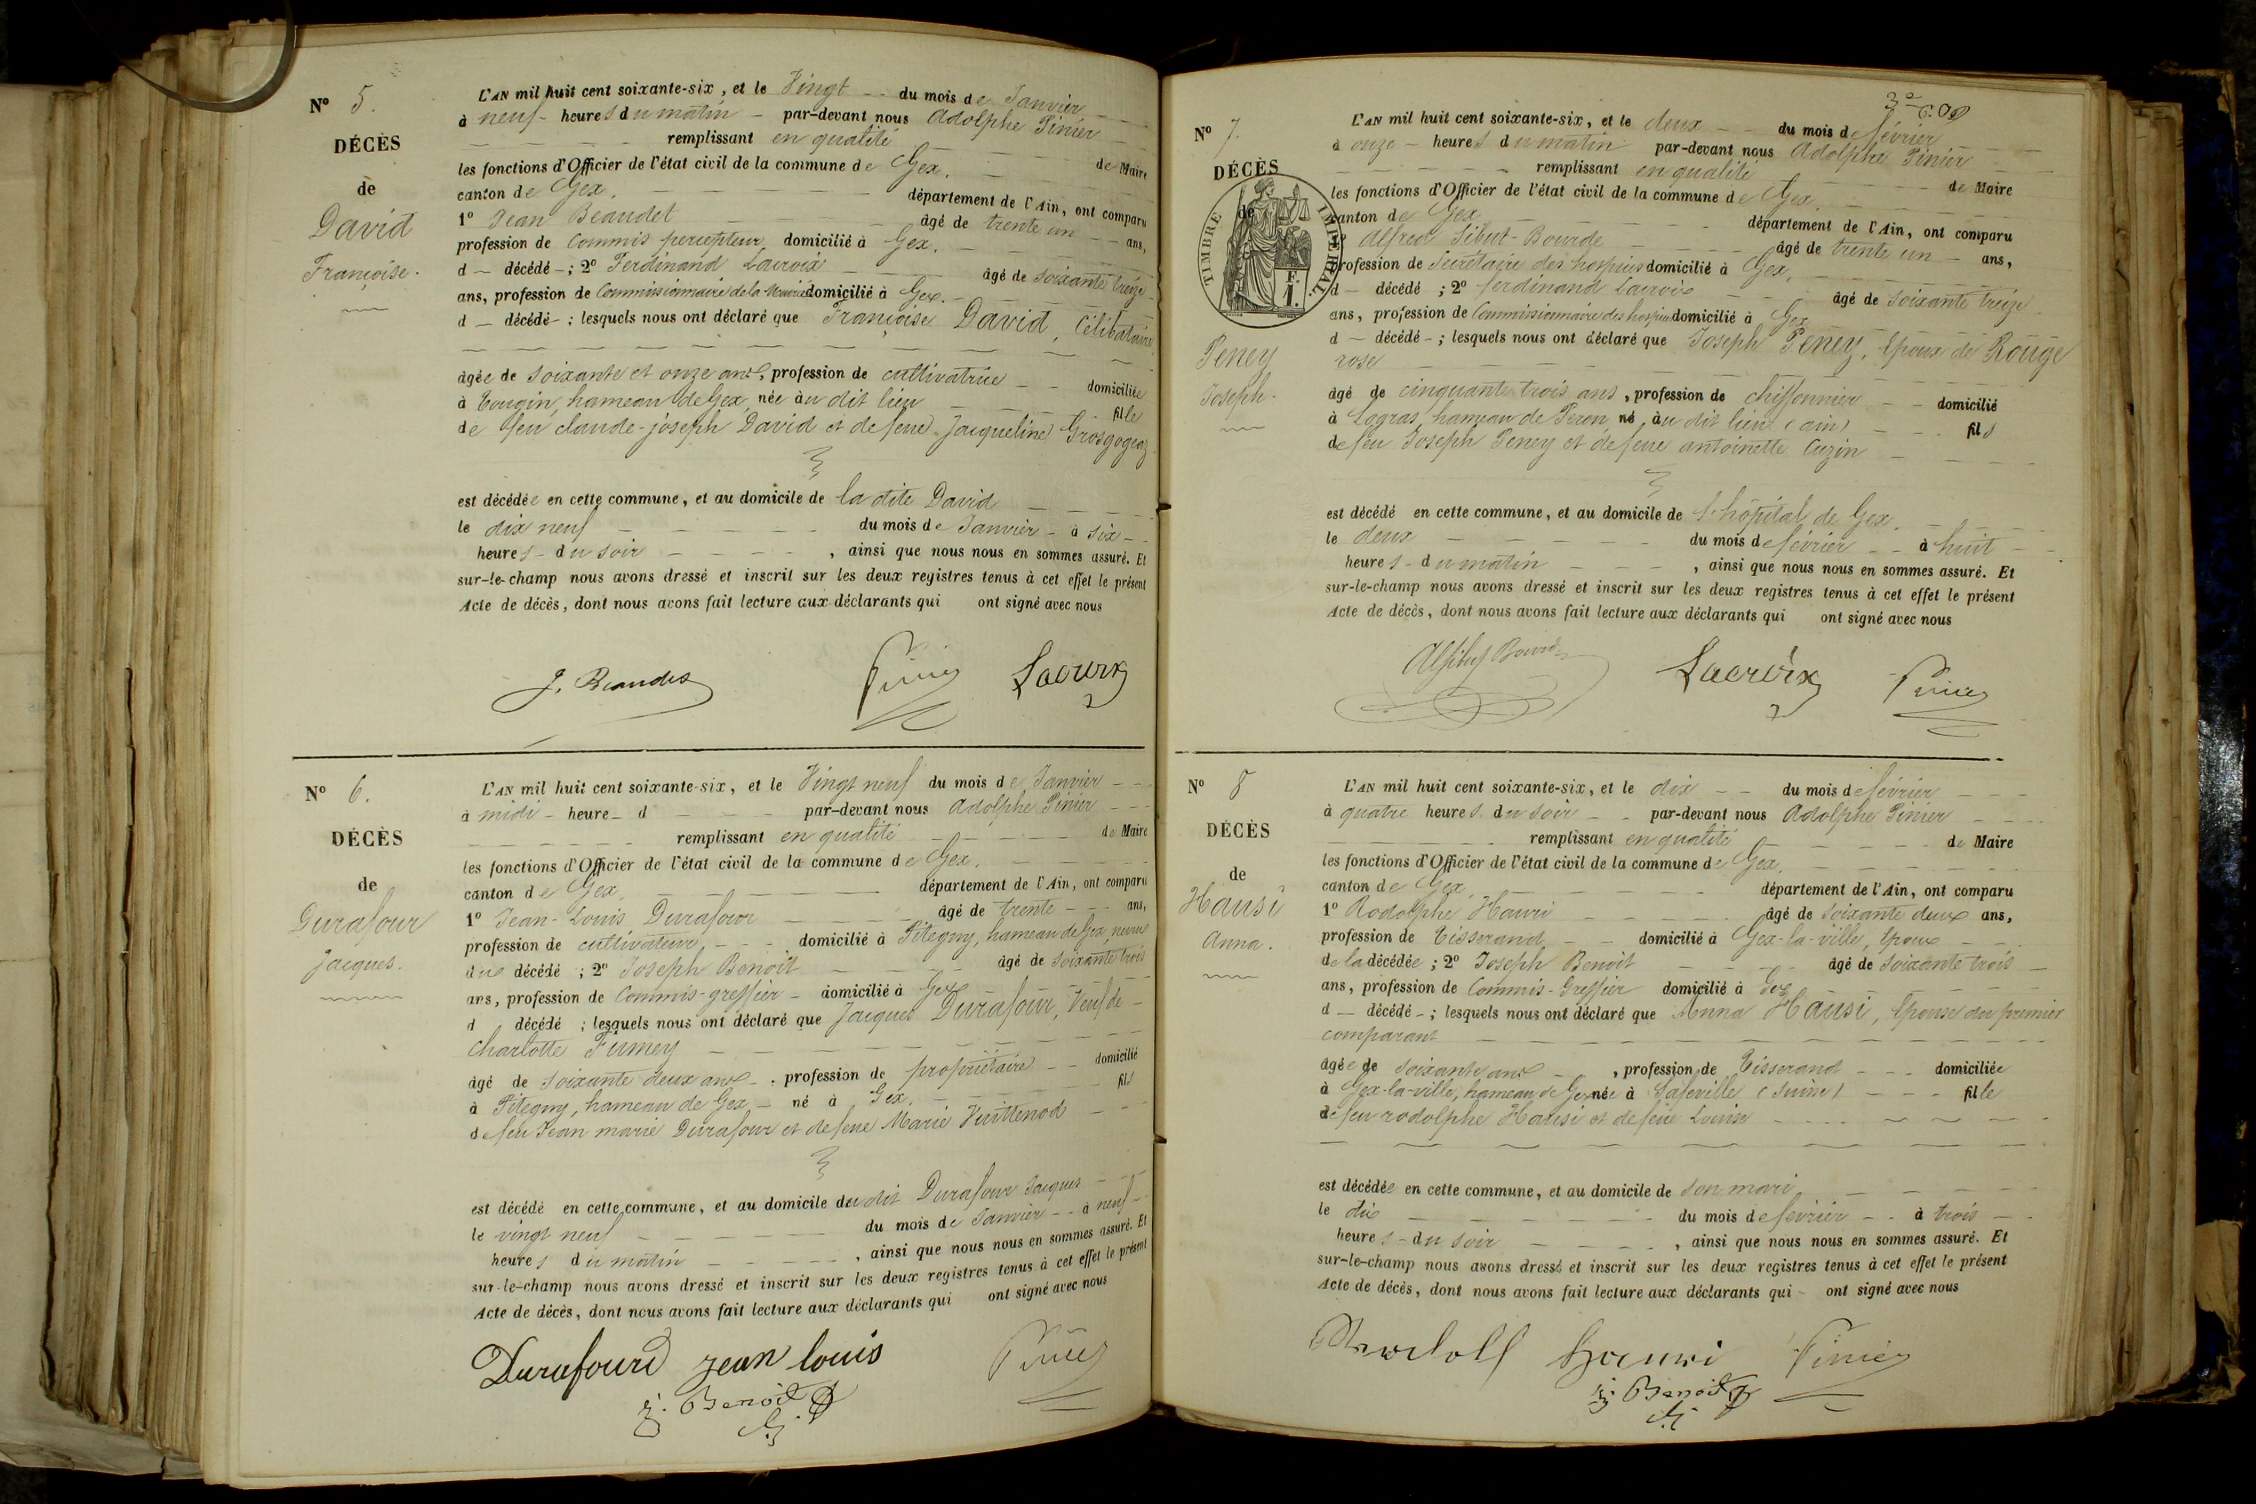 N° 5.
DÉCÈS
de
David
Françoise.
L'AN mil huit cent soixante-six, et le Vingt du mois de Janvier
à neuf heures du matin par-devant nous Adolphe Pinier
remplissant en qualité de Maire
les fonctions d'Officier de l'état civil de la commune de Gex.
canton de Gex. département de l'Ain, ont comparu
1° Jean Beaudet âgé de trente un ans,
profession de Commis percepteur domicilié à Gex.
d décédé ; 2° Ferdinand Lacroix âgé de soixante treize
ans, profession de Commissionnaire de la Mairie domicilié à Gex.
d décédé ; lesquels nous ont déclaré que Françoise David, Célibataire
âgée de soixante et onze ans, profession de cultivatrice domiciliée
à Tougin, hameau de Gex, née au dit lieu fille
de feu claude-joseph David et de feue Jacqueline Grosgogeaz
est décédée en cette commune, et au domicile de la dite David
le dix neuf du mois de Janvier à six
heures du soir, ainsi que nous nous en sommes assuré. Et
sur-le-champ nous avons dressé et inscrit sur les deux registres tenus à cet effet le présent
Acte de décès, dont nous avons fait lecture aux déclarants qui ont signé avec nous
J. Beaudet Pinier Lacroix
N° 6.
DÉCÈS
de
Durafour
Jacques.
L'AN mil huit cent soixante-six, et le Vingt neuf du mois de Janvier
à midi heure d par-devant nous Adolphe Pinier
remplissant en qualité de Maire
les fonctions d'Officier de l'état civil de la commune de Gex.
canton de Gex. département de l'Ain, ont comparu
1° Jean-Louis Durafour âgé de trente ans,
profession de cultivateur, domicilié à Pitegny, hameau de Gex, neveu
du décédé ; 2° Joseph Benoit âgé de soixante trois
ans, profession de Commis-greffier domicilié à Gex
d décédé ; lesquels nous ont déclaré que Jacques Durafour, Veuf de
Charlotte Fumey
âgé de soixante deux ans, profession de propriétaire domicilié
à Pitegny, hameau de Gex né à Gex. fils
de feu Jean marie Durafour et de feue Marie Vuittenod
est décédé en cette commune, et au domicile du dit Durafour Jacques
le vingt neuf du mois de Janvier à neuf
heures du matin, ainsi que nous nous en sommes assuré. Et
sur-le-champ nous avons dressé et inscrit sur les deux registres tenus à cet effet le présent
Acte de décès, dont nous avons fait lecture aux déclarants qui ont signé avec nous
Durafourd jean louis Pinier
j. Benoit
N° 7.
DÉCÈS
de
TIMBRE IMPÉRIAL.
Peney
Joseph.
L'AN mil huit cent soixante-six, et le deux du mois de février
à onze heures du matin par-devant nous Adolphe Pinier
remplissant en qualité de Maire
les fonctions d'Officier de l'état civil de la commune de Gex.
canton de Gex département de l'Ain, ont comparu
1° Alfred Sibut-Bourde âgé de trente un ans,
profession de Secrétaire des hospices domicilié à Gex,
d décédé ; 2° ferdinand Lacroix âgé de soixante treize
ans, profession de Commissionnaire des hospices domicilié à Gex
d décédé ; lesquels nous ont déclaré que Joseph Peney, époux de Rouge
rose
âgé de cinquante trois ans, profession de chiffonnier domicilié
à Logras, hameau de Peron, né au dit lieu (ain) fils
de feu Joseph Peney et de feue antoinette Cuzin
est décédé en cette commune, et au domicile de l'hôpital de Gex.
le deux du mois de février à huit
heures du matin, ainsi que nous nous en sommes assuré. Et
sur-le-champ nous avons dressé et inscrit sur les deux registres tenus à cet effet le présent
Acte de décès, dont nous avons fait lecture aux déclarants qui ont signé avec nous
Lacroix Pinier
N° 8
DÉCÈS
de
Hausi
Anna.
L'AN mil huit cent soixante-six, et le dix du mois de février
à quatre heures du soir par-devant nous Adolphe Pinier
remplissant en qualité de Maire
les fonctions d'Officier de l'état civil de la commune de Gex,
canton de Gex département de l'Ain, ont comparu
1° Rodolphe Hauri âgé de soixante deux ans,
profession de Tisserand domicilié à Gex-la-ville, époux
de la décédée ; 2° Joseph Benoit âgé de soixante trois
ans, profession de Commis-Greffier domicilié à Gex
d décédé ; lesquels nous ont déclaré que Anna Hausi, épouse du premier
comparant
âgée de soixante ans, profession de Tisserand domiciliée
à Gex-la-ville, hameau de Gex née à Safeville (suisse) fille
de feu rodolphe Hausi et de feue Louise
est décédée en cette commune, et au domicile de son mari
le dix du mois de février à trois
heures du soir, ainsi que nous nous en sommes assuré. Et
sur-le-champ nous avons dressé et inscrit sur les deux registres tenus à cet effet le présent
Acte de décès, dont nous avons fait lecture aux déclarants qui ont signé avec nous
Rudolf Hauri Pinier
j. Benoit